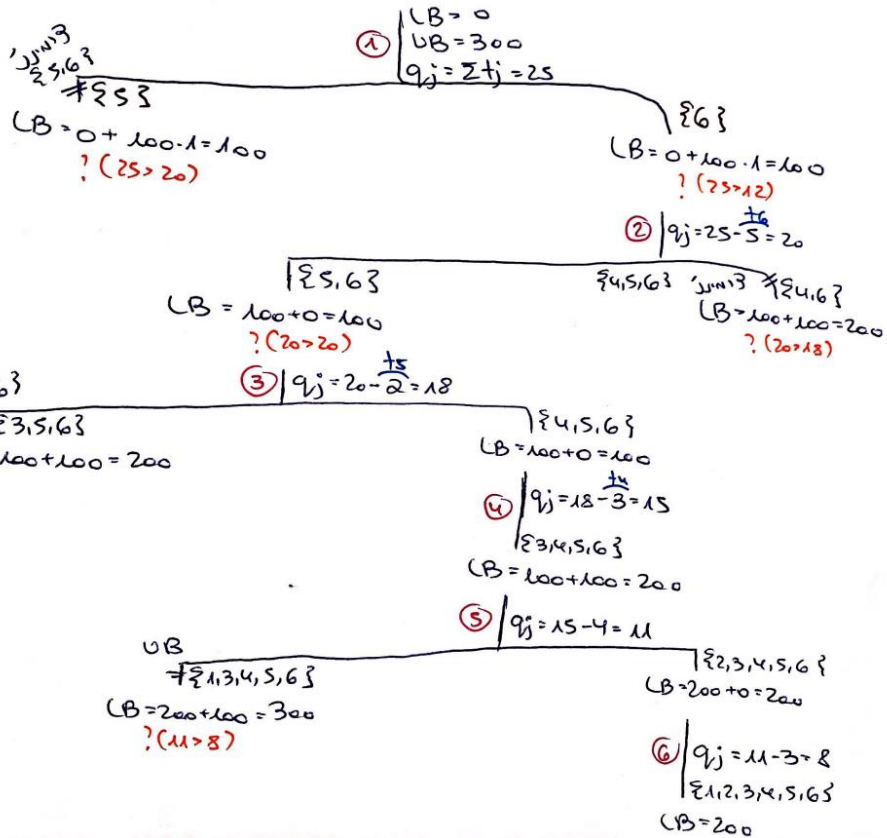 LB = 0
① UB = 300
qj = Σtj = 25
{5,6}
≠{5}
LB = 0 + 100·1 = 100
? (25>20)
{6}
LB = 0 + 100·1 = 100
? (25>12)
t6
② qj = 25 - 5 = 20
{5,6}
LB = 100 + 0 = 100
? (20>20)
{4,5,6} ≠{4,6}
LB = 100 + 100 = 200
? (20>18)
t5
③ qj = 20 - 2 = 18
{3,5,6}
100 + 100 = 200
{4,5,6}
LB = 100 + 0 = 100
t4
④ qj = 18 - 3 = 15
{3,4,5,6}
LB = 100 + 100 = 200
⑤ qj = 15 - 4 = 11
UB
≠{1,3,4,5,6}
LB = 200 + 100 = 300
? (11>8)
{2,3,4,5,6}
LB = 200 + 0 = 200
⑥ qj = 11 - 3 = 8
{1,2,3,4,5,6}
LB = 200